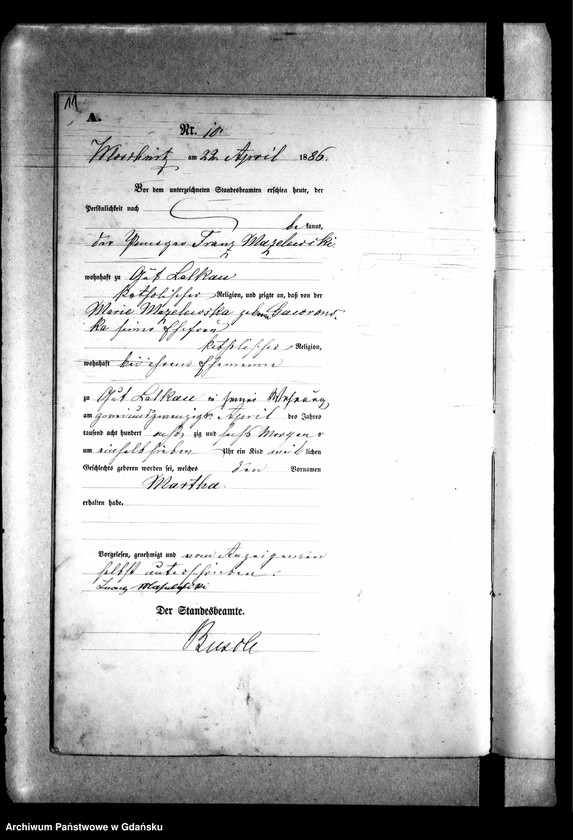 11
A.
Nr. 10.
am 22. April 1886.
Vor dem unterzeichneten Standesbeamten erschien heute, der
Persönlichkeit nach
be kannt,
der Franz Mazelewski
wohnhaft zu Gut Lalkau
katholischer Religion, und zeigte an, daß von der
Marie Mazelewska geborne Gawrons-
ka seiner Ehefrau
katholischer Religion,
wohnhaft bei ihrem Ehemanne
zu Gut Lalkau in seiner Wohnung
am zweiundzwanzigsten April des Jahres
tausend acht hundert acht zig und sechs Morgens
um einhalb sieben Uhr ein Kind weib lichen
Geschlechts geboren worden sei, welches den Vornamen
Martha
erhalten habe.
Vorgelesen, genehmigt und vom Anzeigenden
selbst unterschrieben.
Franz
Der Standesbeamte.
Archiwum Państwowe w Gdańsku